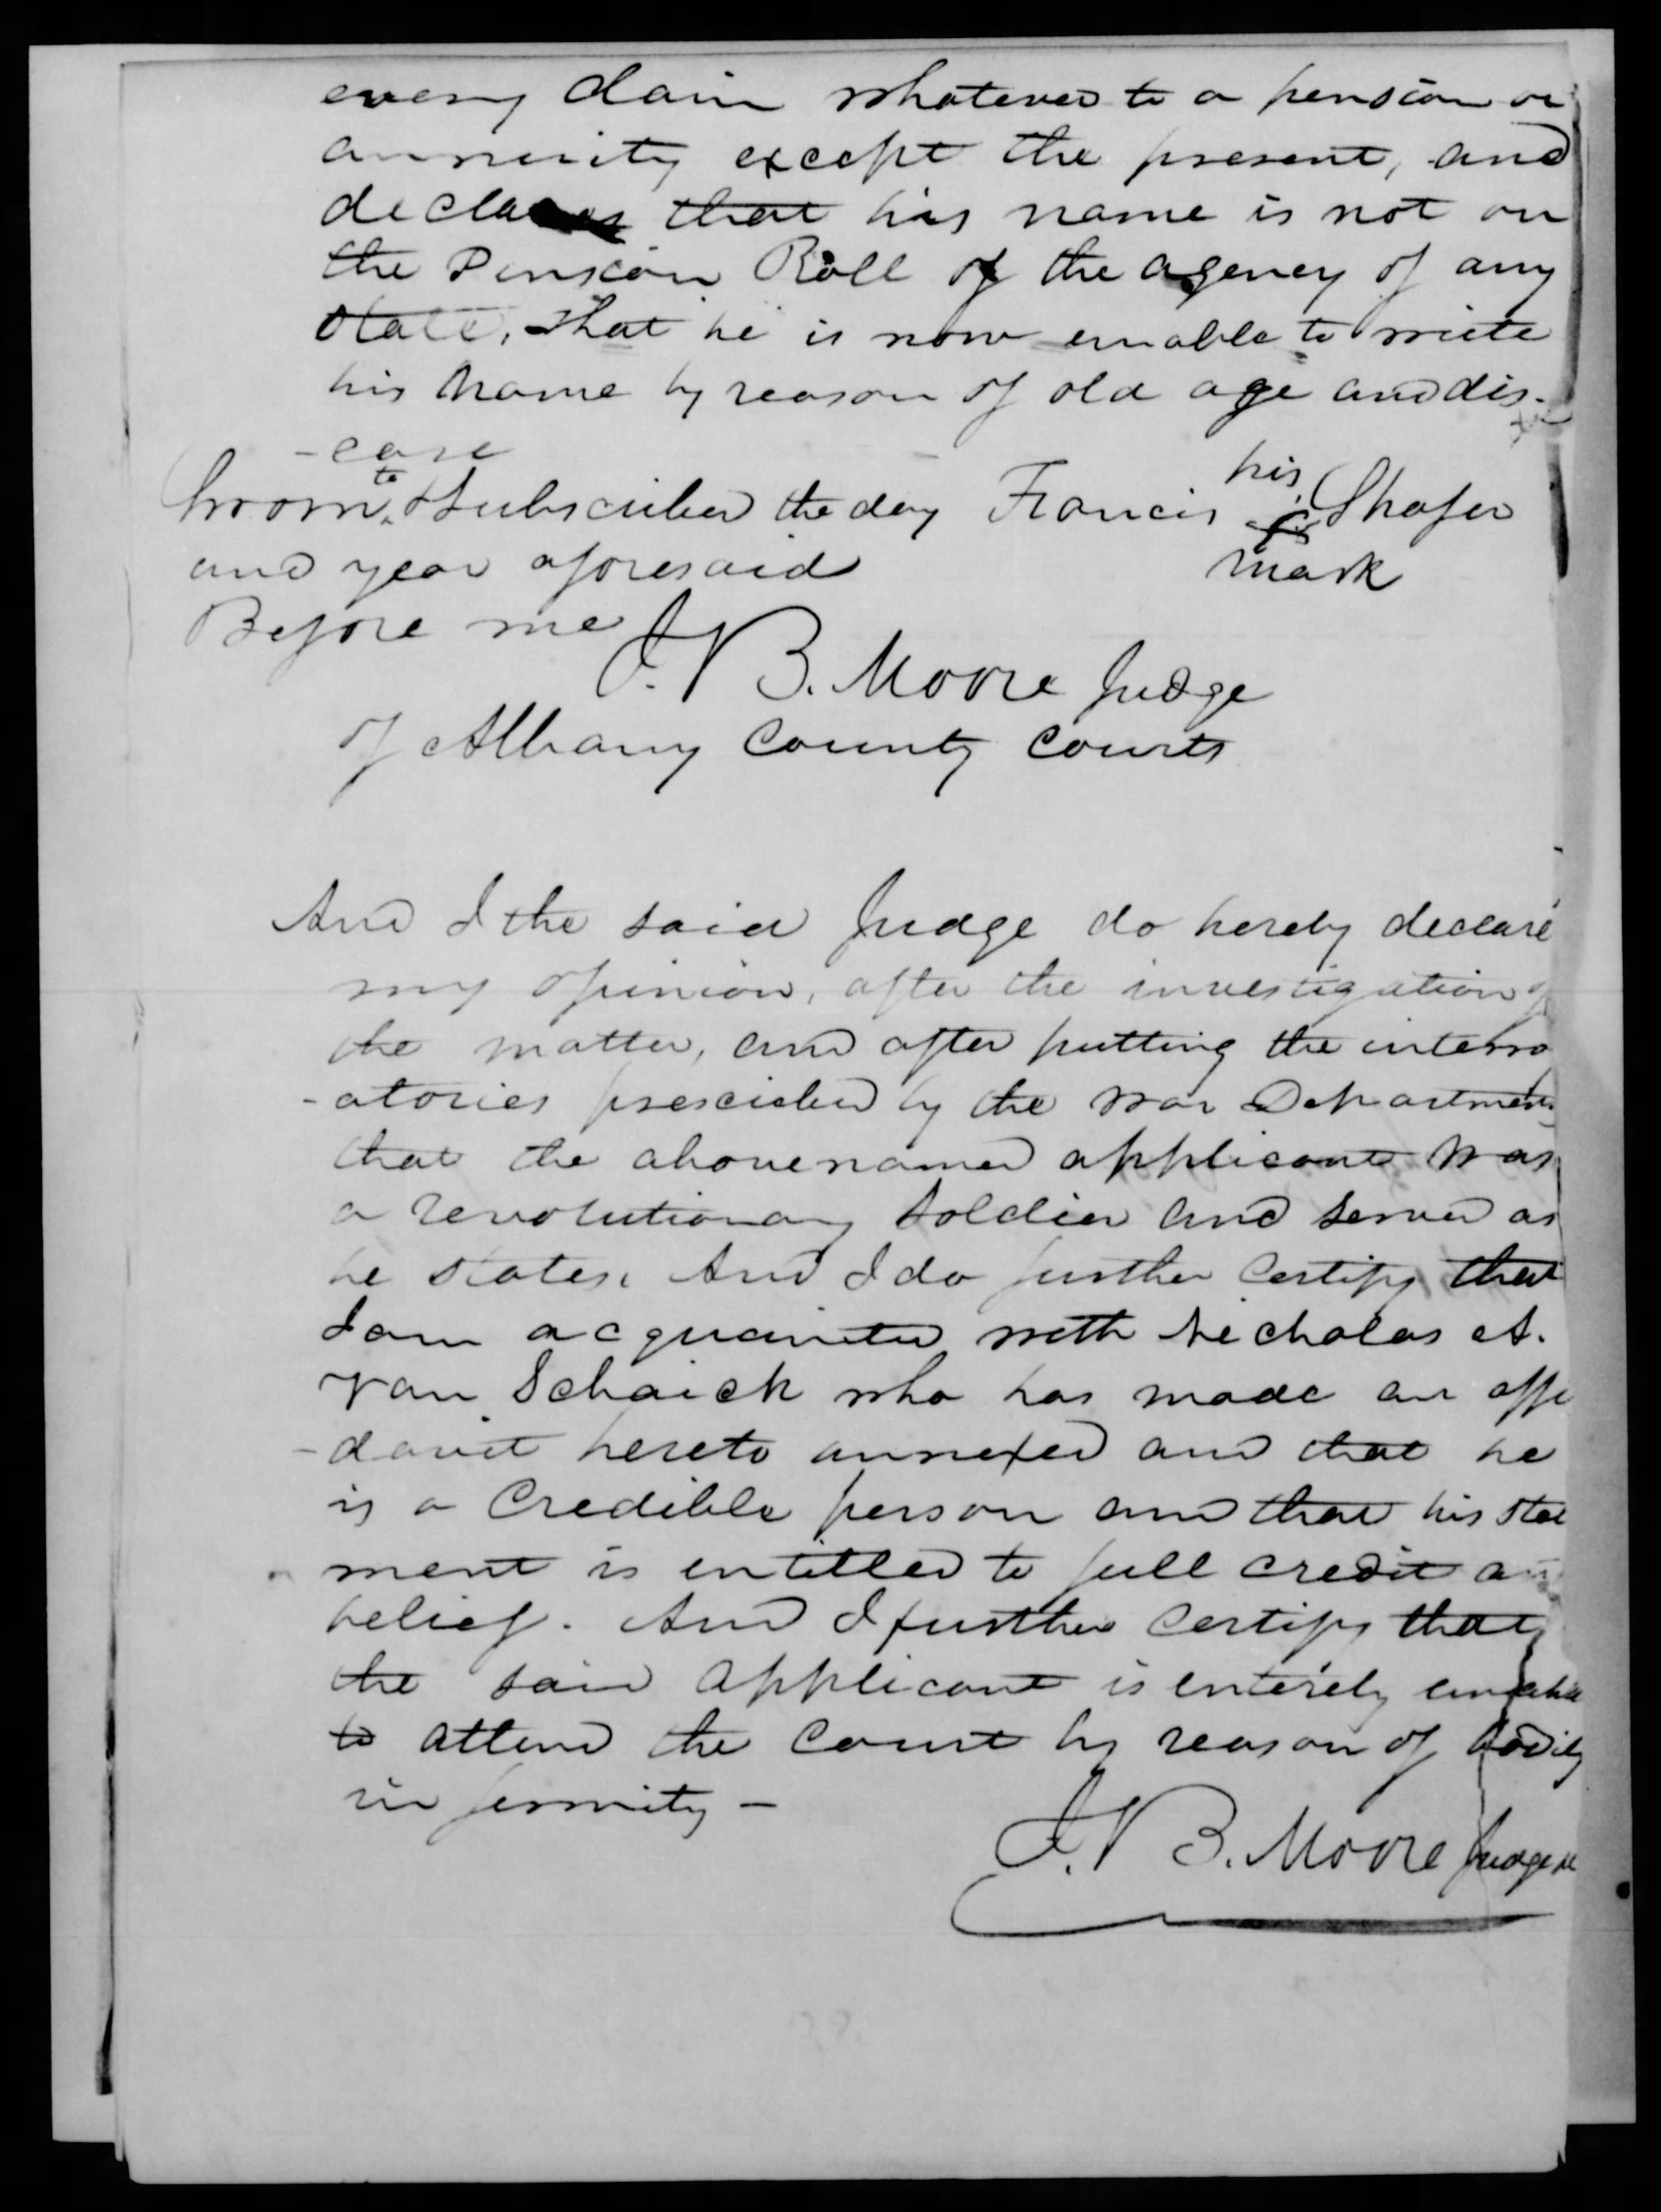 every claim whatever to a pension or
annuity except the present, and
declares that his name is not on
the Pension Roll of the agency of any
State, that he is now unable to write
his name by reason of old age and dis-
-ease
Sworn to & Subscribed the day Francis his X Shafer
and year aforesaid mark
Before me
J. V B. Moore Judge
of Albany County Courts
And I the said Judge do hereby declare
my opinion, after the investigation of
the matter, and after putting the interro
-atories prescribed by the War Department
that the abovenamed applicant was
a revolutionary soldier and served as
he states. And I do further Certify that
I am acquainted with Nicholas A.
Van Schaick who has made an affi
-davit hereto annexed and that he
is a Credible person and that his stat
ment is entitled to full credit an
belief. And I further Certify that
the said applicant is entirely unable
to attend the Court by reason of bodily
infirmity -
J. V B. Moore Judge